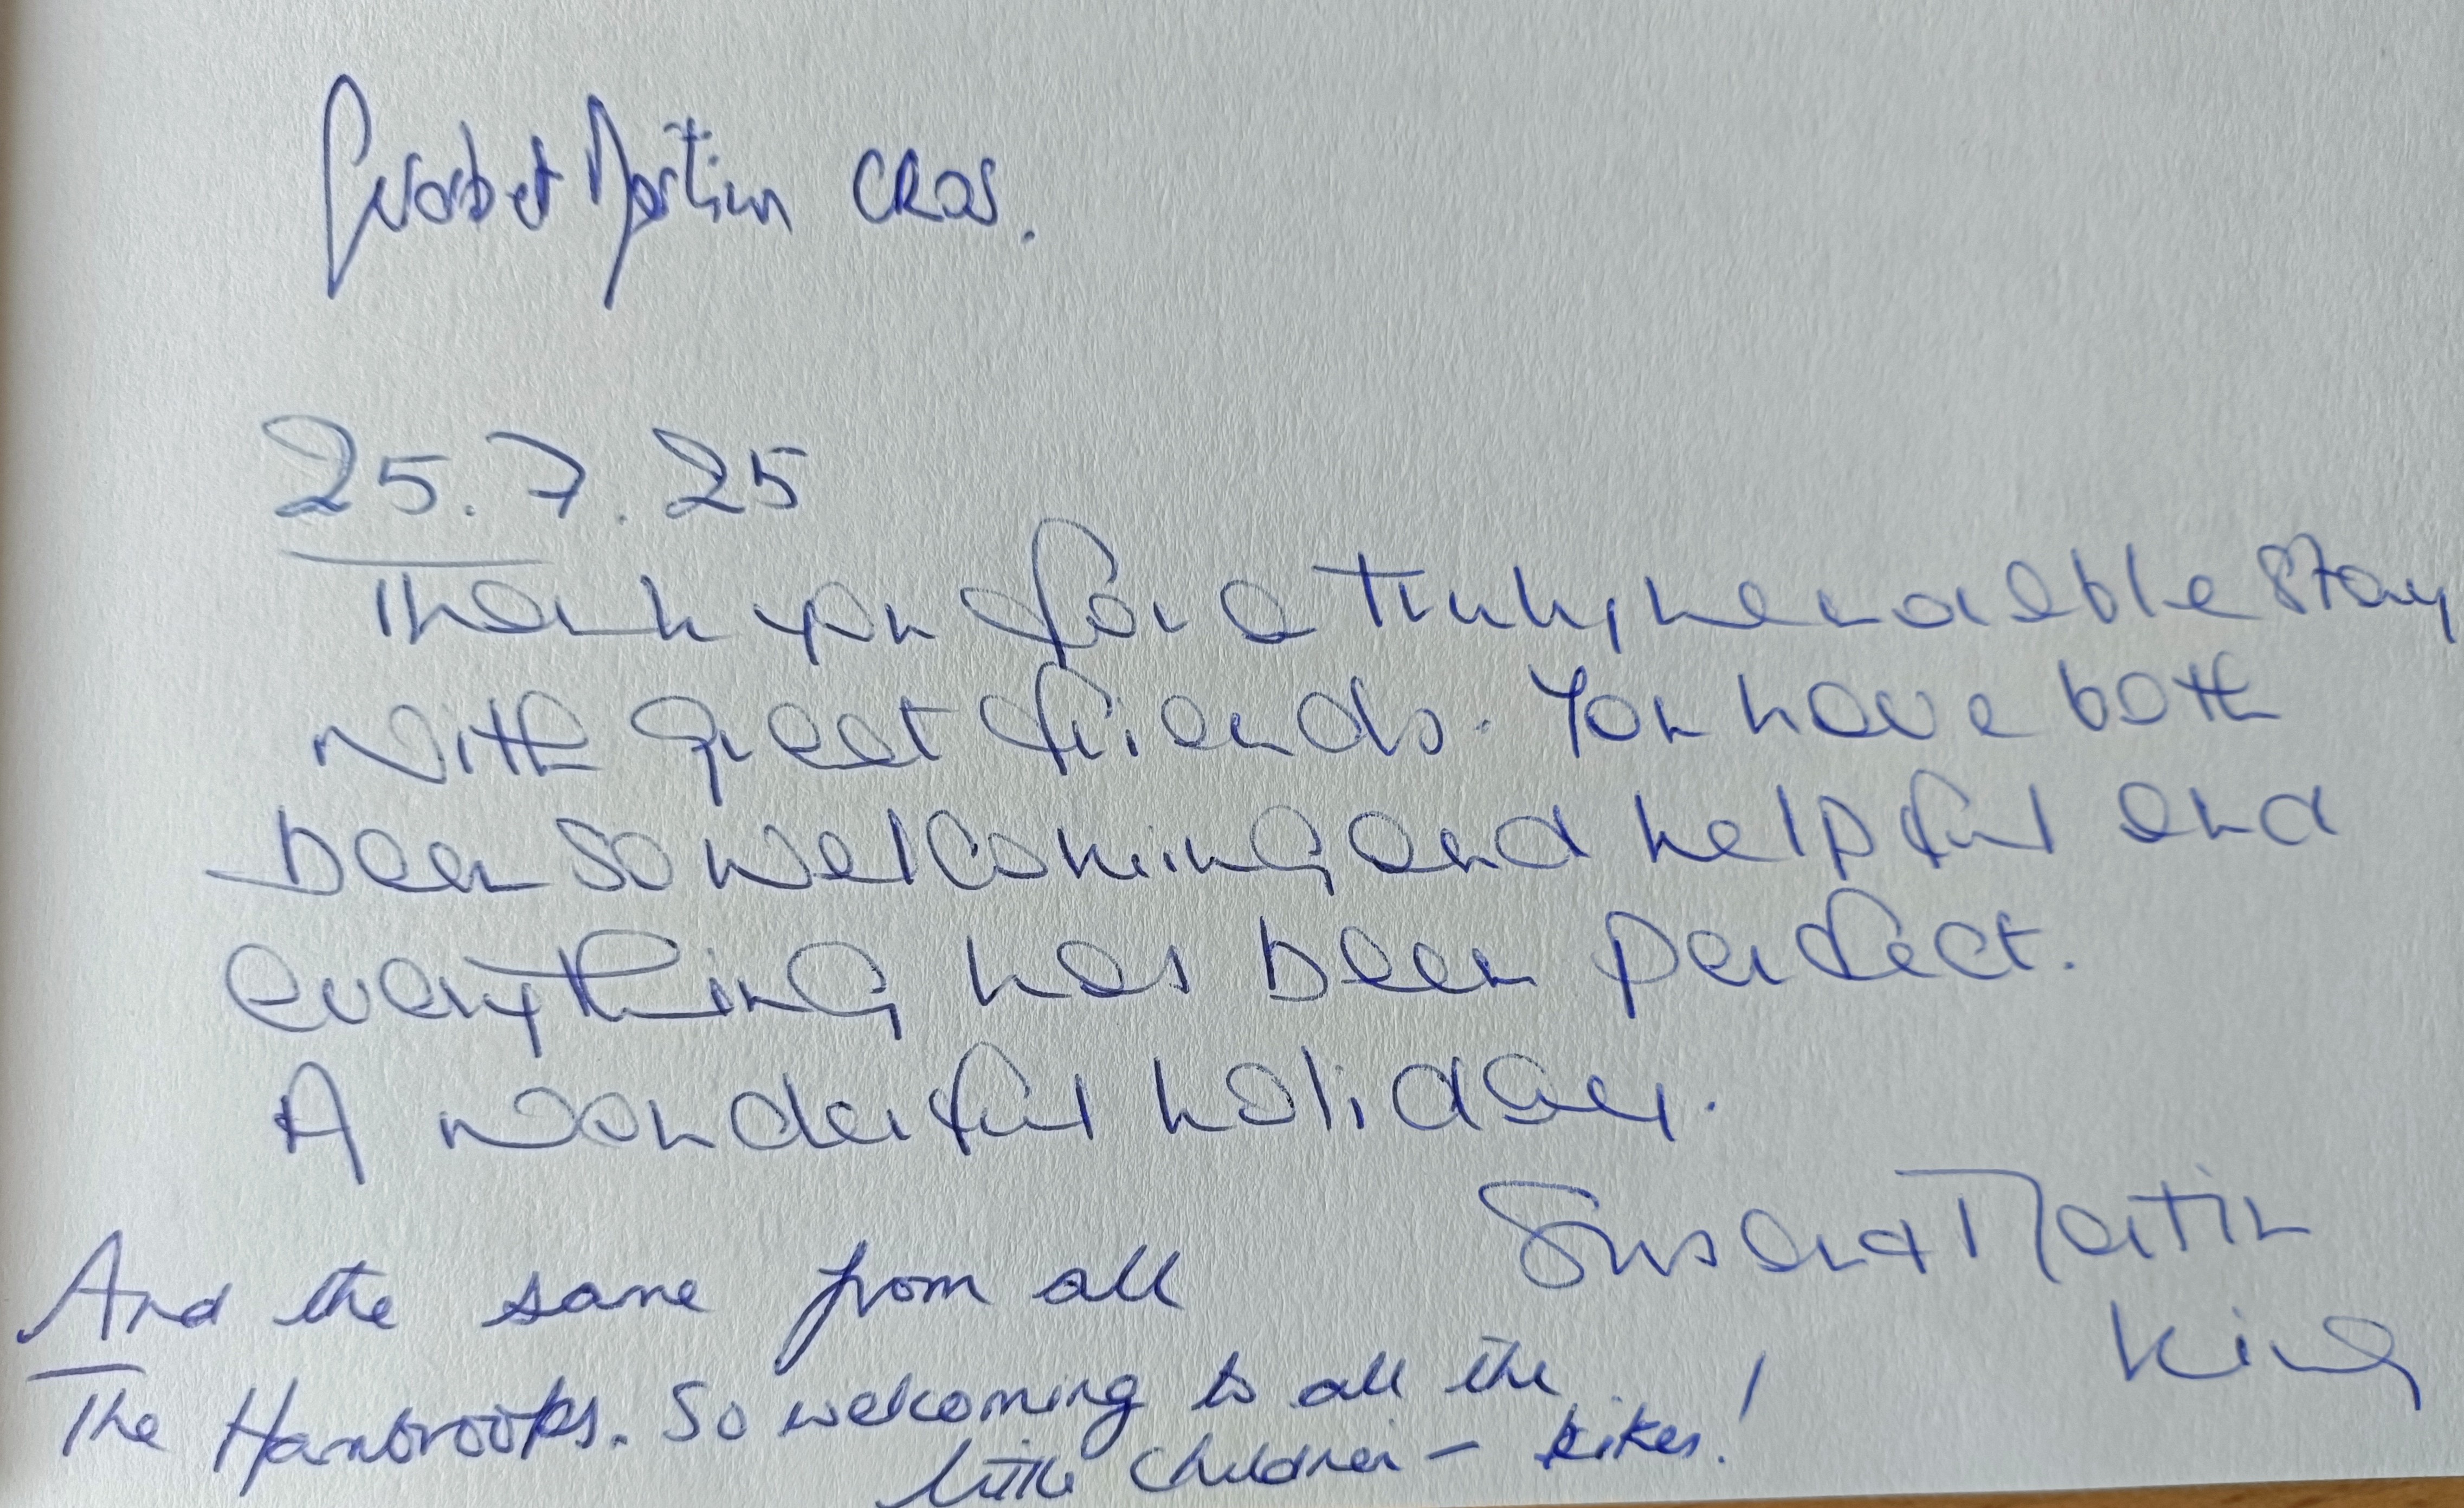 et Martin CROS.
25.7.25
Thank you for a truly memorable stay
with great friends. You have both
been so welcoming and helpful and
everything has been perfect.
A wonderful holiday.
Susan + Martin
King
And the same from all
The Hambrooks. So welcoming to all the
little children -